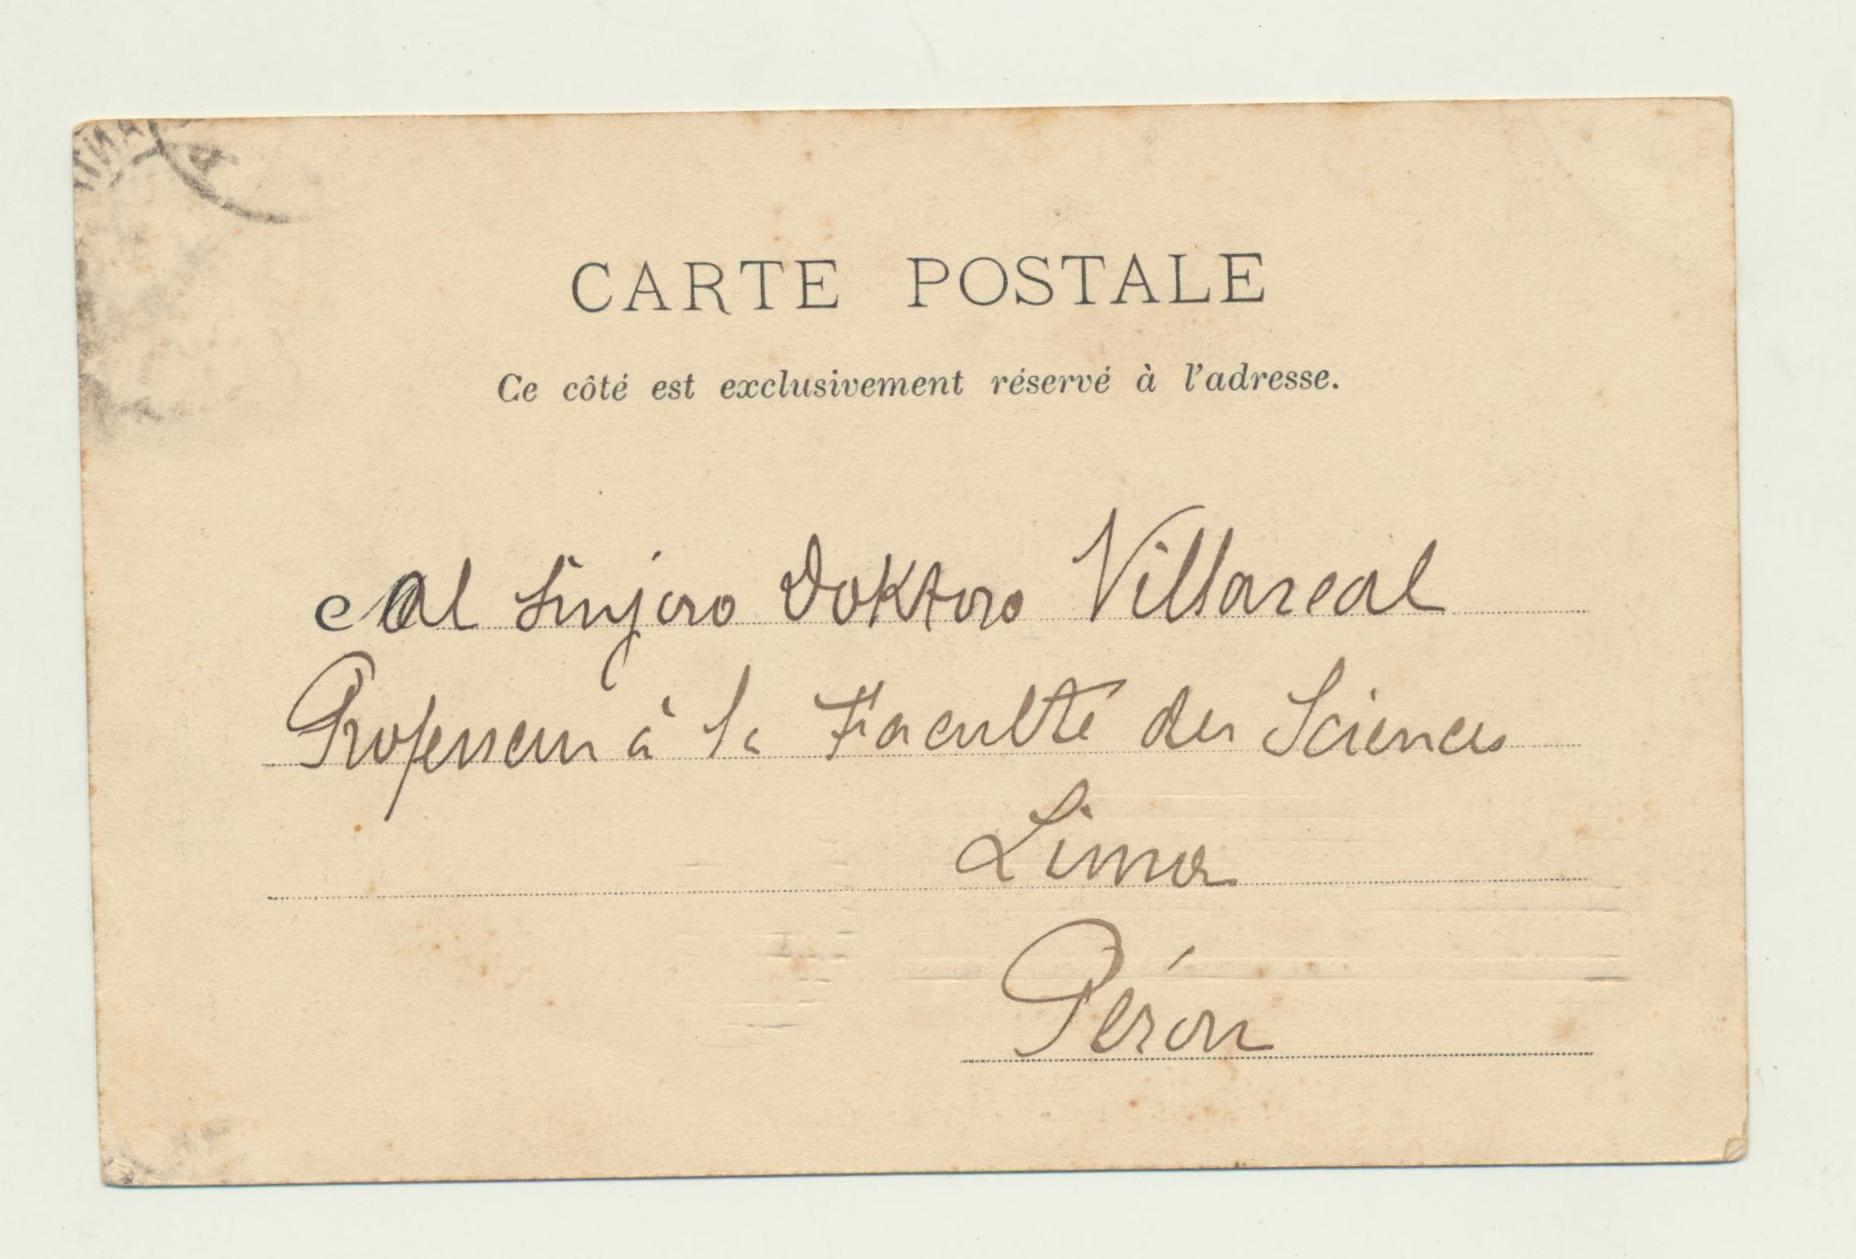 CARTE POSTALE
Ce côté est exclusivement réservé à l'adresse.
Al Sinjoro Doktoro Villareal
Professeur à la Faculté des Sciences
Lima
Pérou